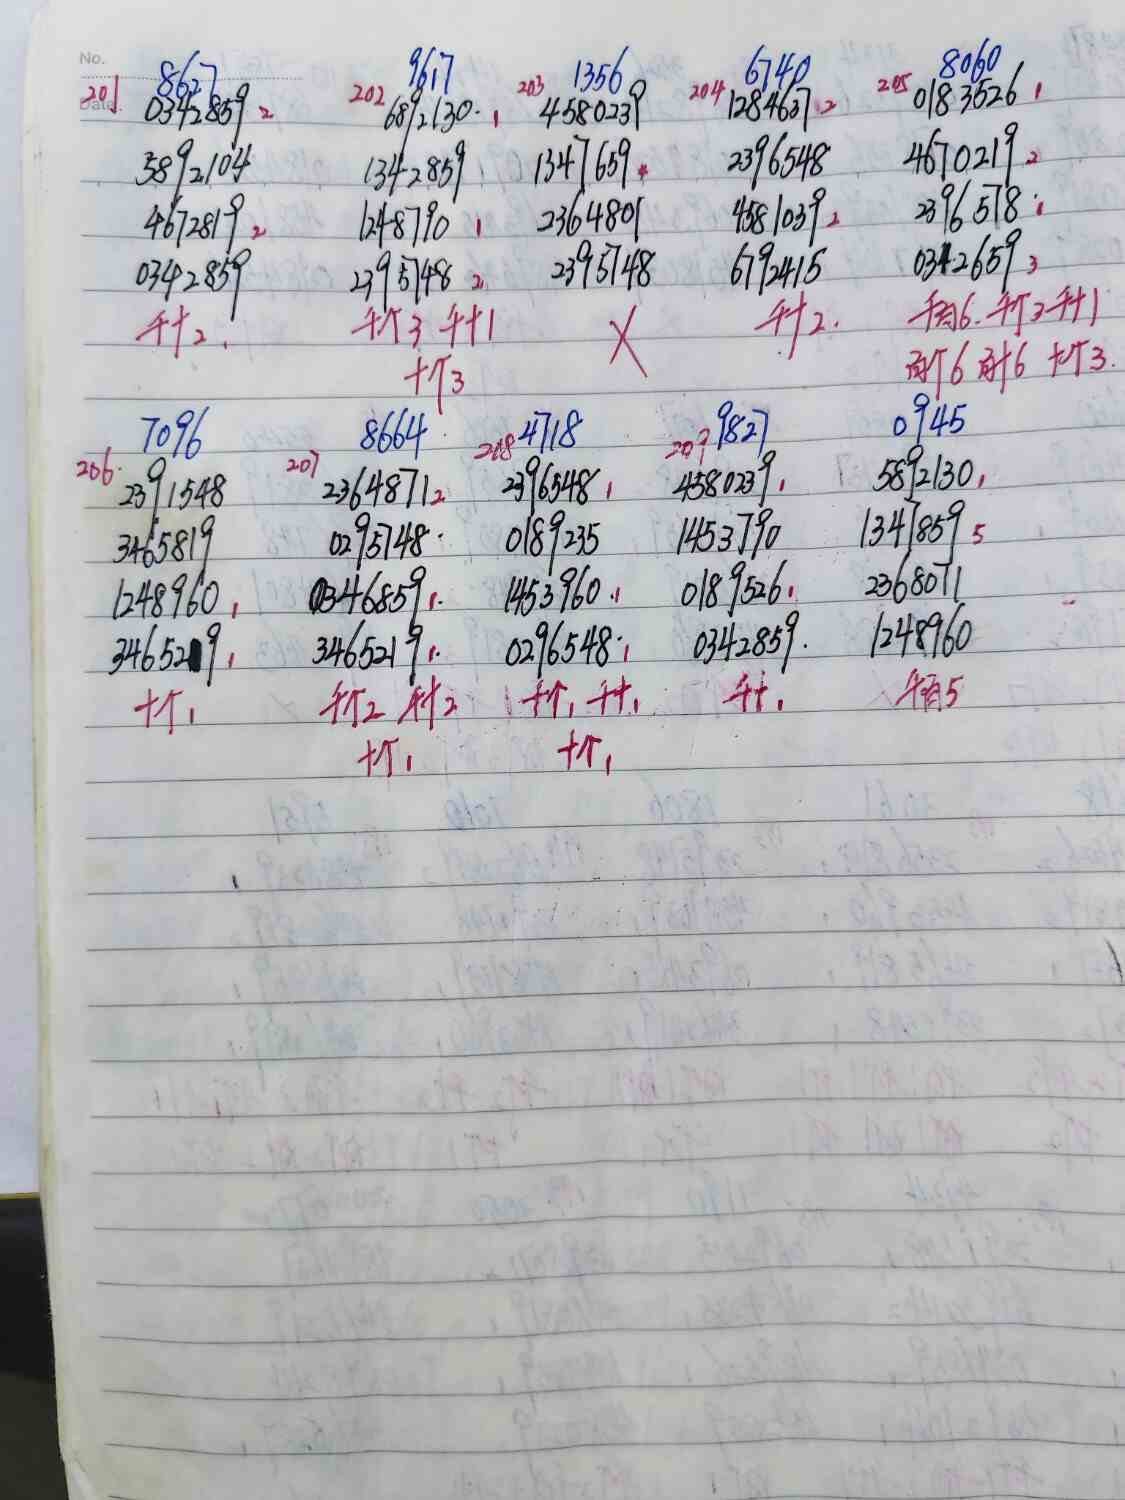 No.
Date.
8627 9617 1356 6740 8060
201 0342859 2 202 6892130 1 203 4580239 204 1284637 2 205 0183526 1
5892104 1342859 1347659 2396548 4670219 2
4672819 2 1248790 1 2364801 4581039 2 2396578 1
0342859 2395748 2 2395748 6792415 0342659 3
千十2. 千个3 千十1 X 千十2. 千百6. 千个3 千十1
十个3 百个6 百十6 十个3.
7096 8664 4718 9827 0945
206. 2391548 207 2364871 2 208 2396548 1 209 4580239 1 5892130 1
3465819 0295748 0189235 1453790 1347859 5
1248960 1 0346859 1 1453960 1 0189526 1 2368071
3465219 1 3465219 1 0296548 1 0342859 1248960
十个1 千个2 千十2 千个1 千十1 千十1 千百5
十个1 十个1